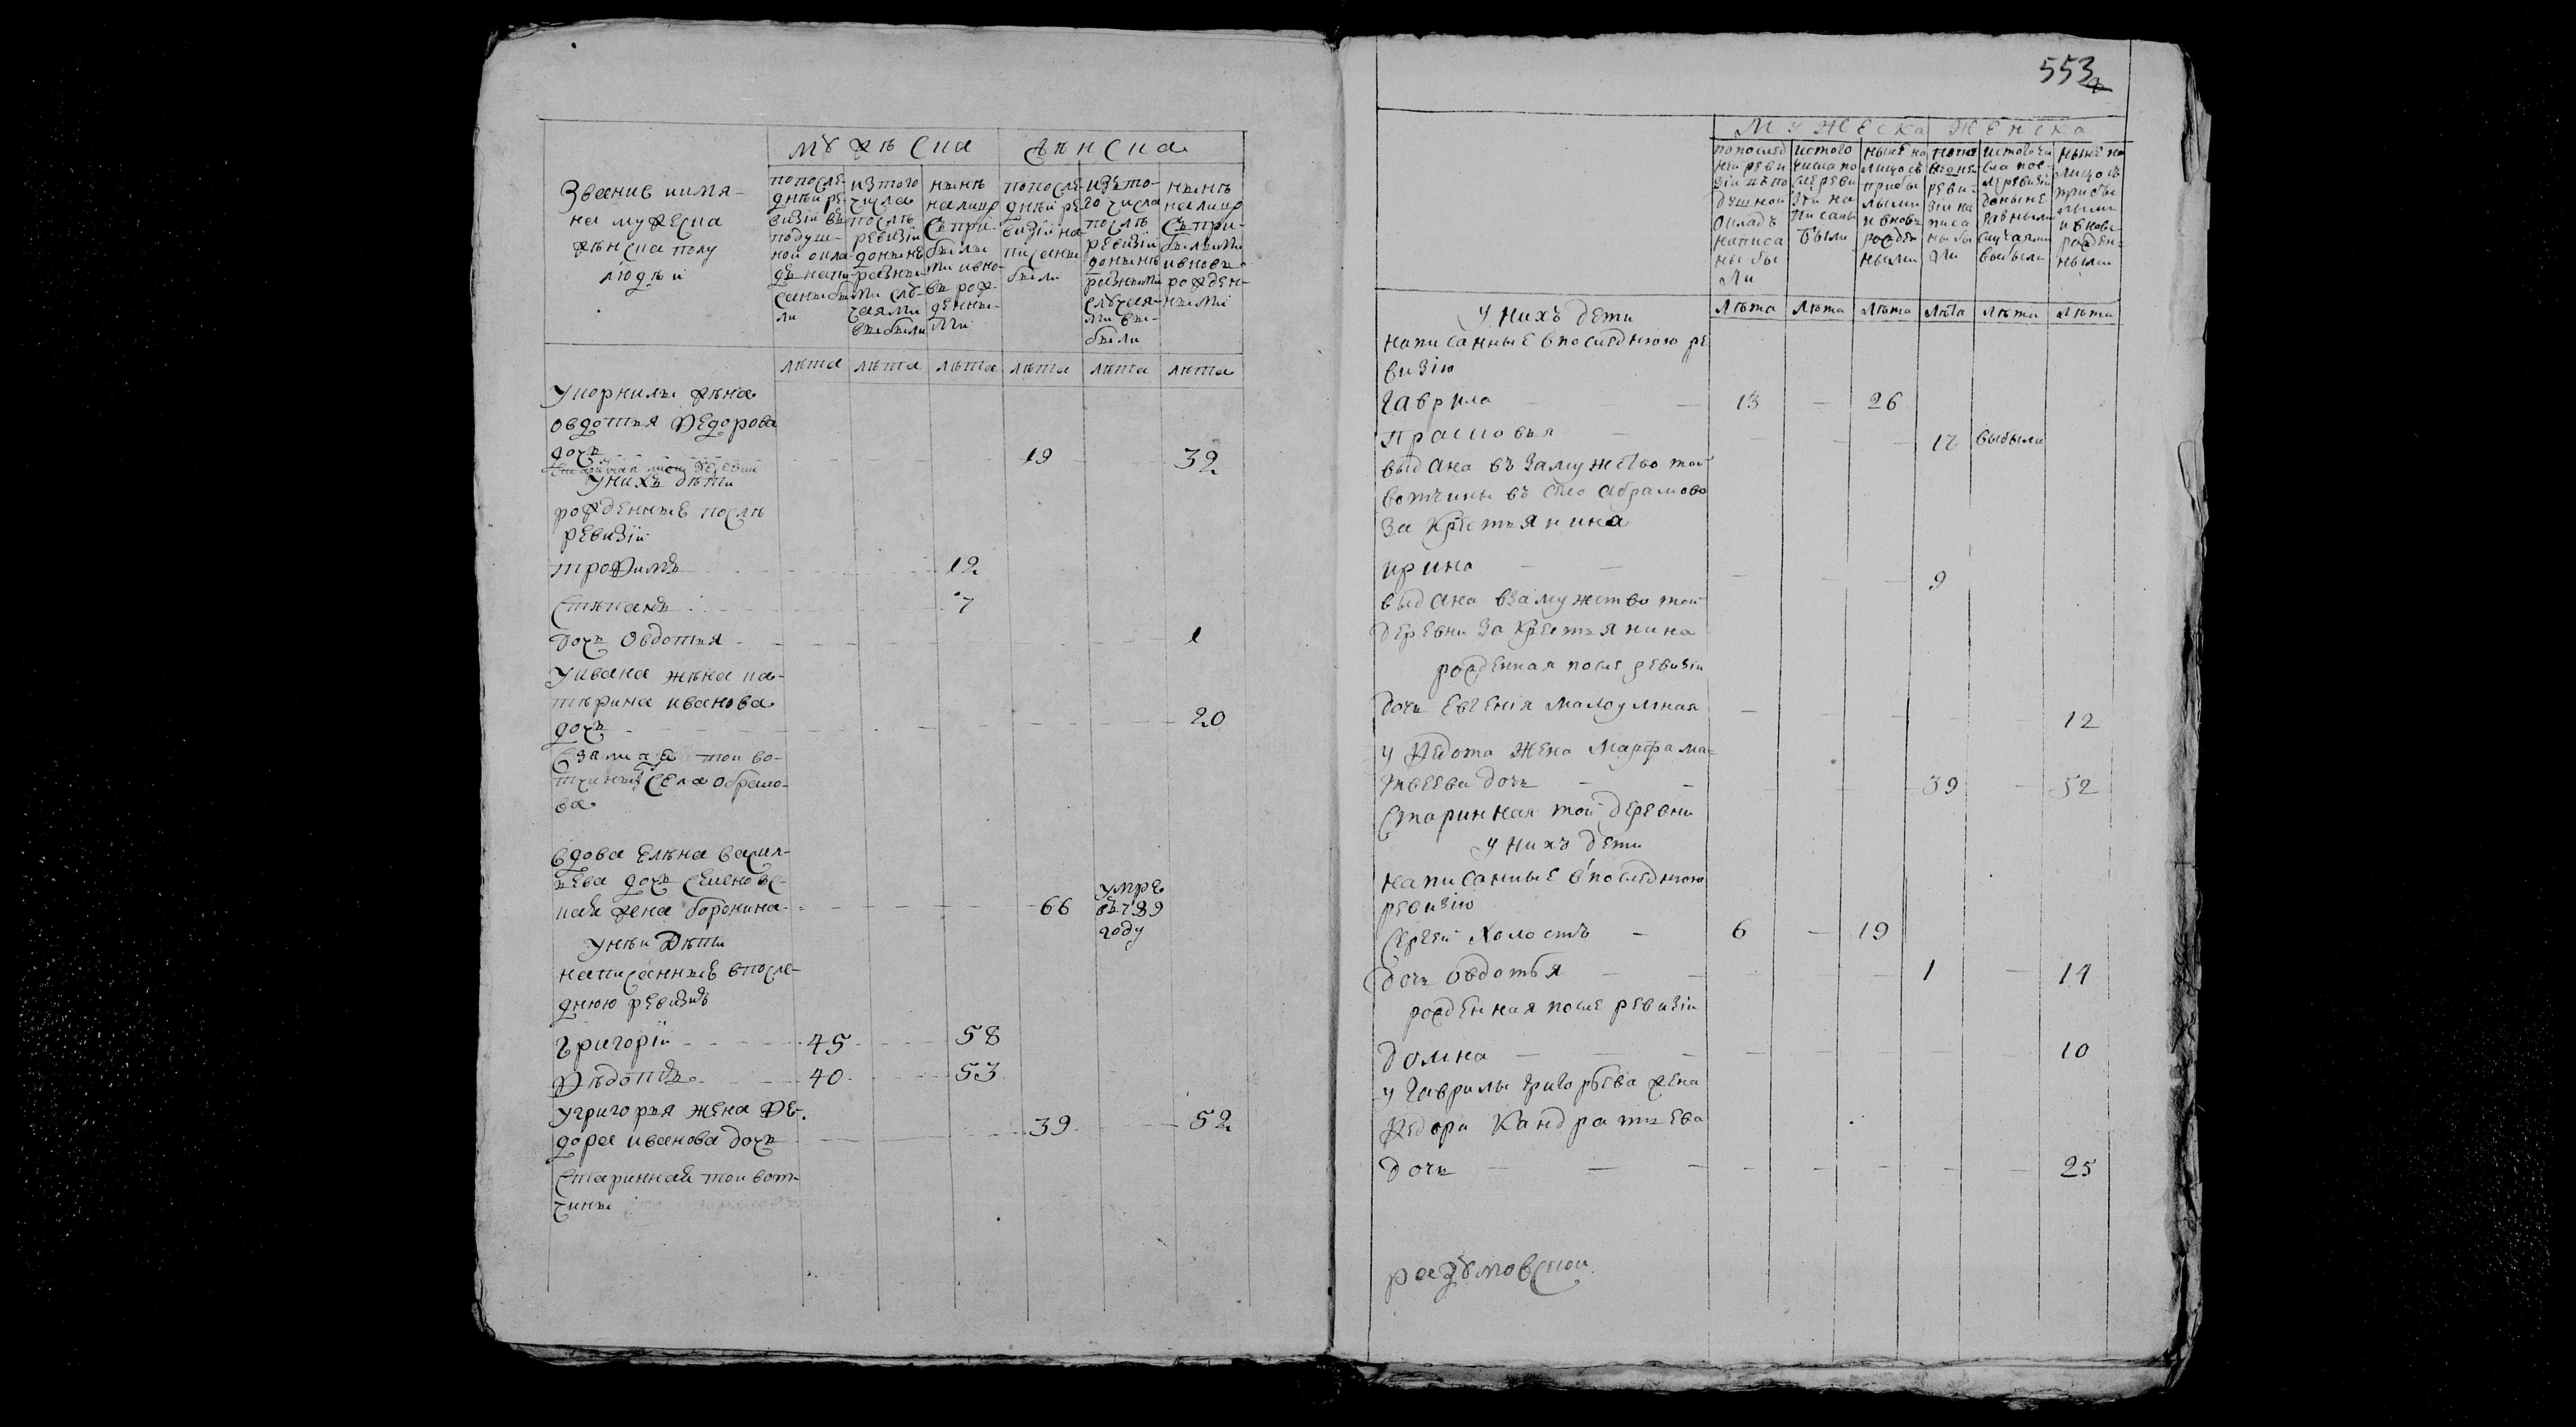 Звание иимя-
на мужеска
женска полу
людѣи
мꙋжеска
женска
попосле-
днѣи ре-
визіи въ
подуш-
ной окла-
дъ напи-
саны бы-
ли
изтого
числа
послѣ
ревизіи
донынѣ
разны-
ми слꙋ-
чаями
выбыли
нынѣ
налицо
съпри-
былы-
ми ивно-
въ рож-
денны-
ми
попосле-
днѣи ре-
визіи на
писаны
были
изъто-
го числа
послѣ
ревизіи
донынѣ
разными
слꙋчая-
ми вы-
были
нынѣ
налицо
съпри-
былыми
ивновь
рожден-
ными
лѣта лѣта лѣта лѣта лѣта лѣта
Укорнилы жена
овдотья Федорова
дочь 19 32
Унихъ дѣти
рожденные послѣ
ревизіи
трофимъ 12
Степанъ 7
дочь Овдотья 1
Уивана жена ка-
терина иванова
дочь 20
взята тои во-
тчины села обрамо-
ва
вдова Елѣна васил-
ьева дочь
жена 66 умре
въ 789
году
Унѣи Дѣти
написанные впосле-
днюю ревизію
Григоріи 45 58
Федотъ 40 53
Угригорья жена Фе-
дора иванова дочь 39 52
Старинная тои вот-
чины
553
Мужеска Женска
попослед
неи реви
зіи въпо
душнои
окладъ
написа
ны бы
ли
истого
числа по
сле реви
зіи на
писаны
были
ныне на
лицо съ
прибы
лыми
и вновь
рожден
ными
попо
следне
реви-
зіи на
писа
ны бы
ли
истого чи
сла пос-
ле ревизіи
доныне
разными
случаями
выбыли
ныне на
лицо съ
прибы
лыми
и вновь
рожден-
ными
лѣта лѣта лѣта лѣта лѣта лѣта
У нихъ дети
написанные впоследнюю ре
визію
Гаврила 13 26
Прасковья 12 выбыли
выдана въ замужство тои
вотчины въ село абрамово
за крестьянина
ирина 9
выдана взамужство тои
деревни за крестьянина
рожденная после ревизіи
дочь Евгенія малоумная 12
у Федота жена Марфа ма-
твеева дочь 39 52
Старинная тои деревни
у нихъ дети
написанные впоследнюю
ревизію
Сергеи холостъ 6 19
дочь овдотья 1 14
рожденная после ревизіи
домна 10
у Гаврилы григорьева жена
Федора Кандратьева
дочь 25
разꙋмовскои